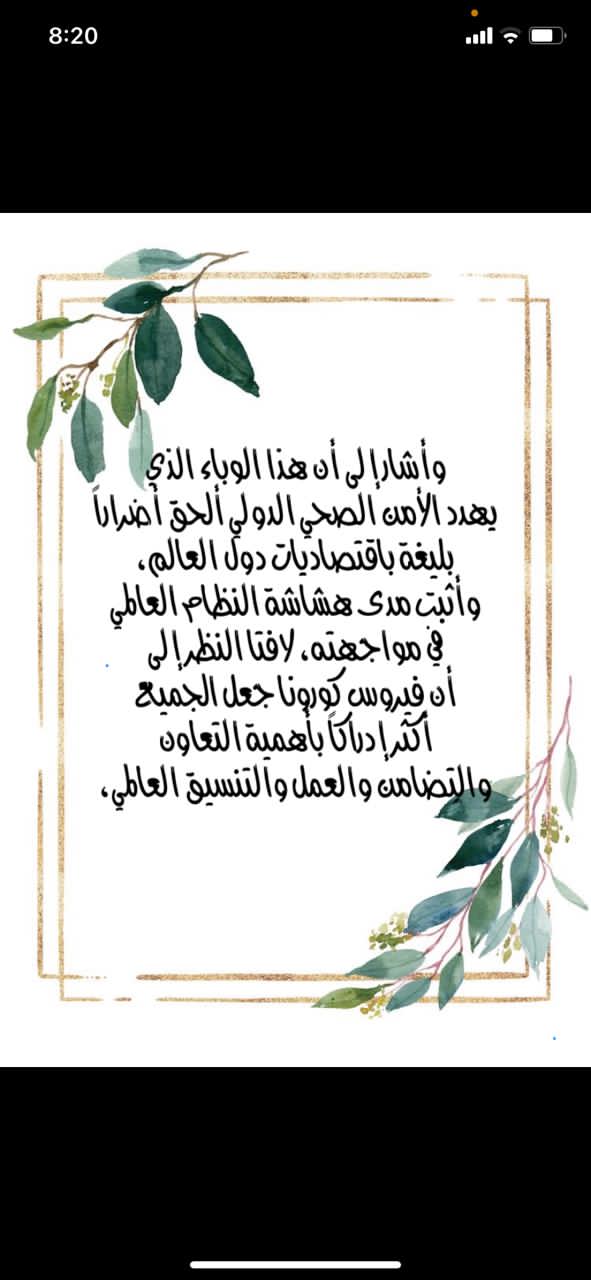 8:20
وأشار إلى أن هذا الوباء الذي
يهدد الأمن الصحي الدولي ألحق أضراراً
بليغة باقتصاديات دول العالم،
وأثبت مدى هشاشة النظام العالمي
في مواجهته، لافتا النظر إلى
أن فيروس كورونا جعل الجميع
أكثر إدراكاً بأهمية التعاون
والتضامن والعمل والتنسيق العالمي،